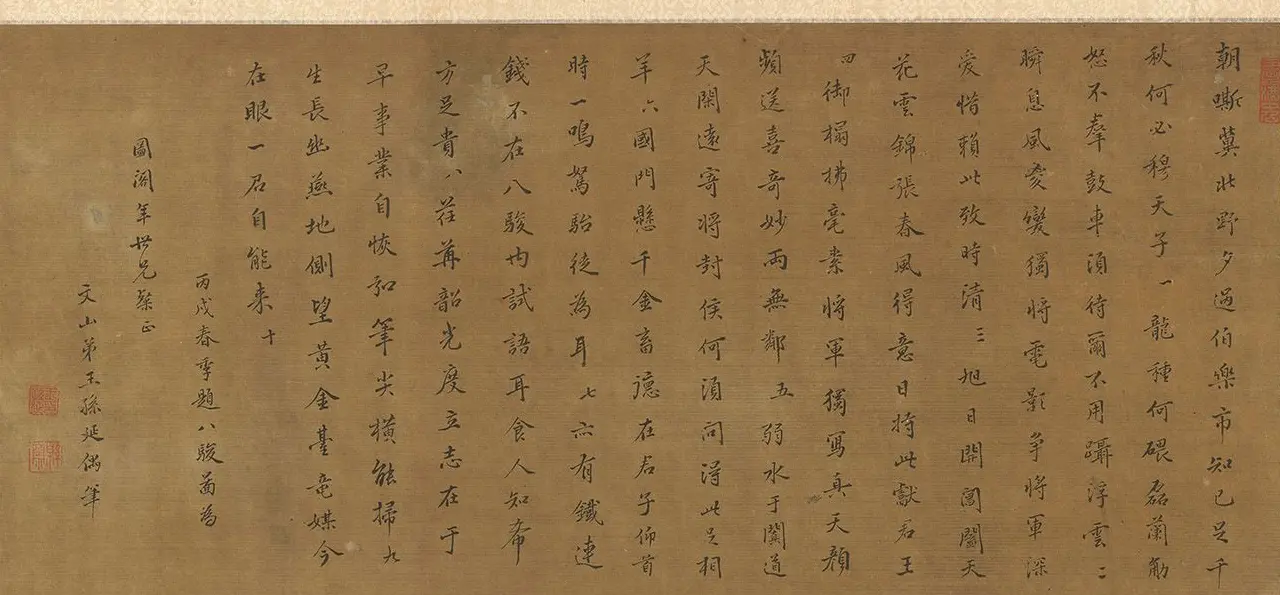 朝嘶冀北野夕過伯樂市知己足千
秋何必穆天子一龍種何磈磊蘭筋
怒不羣鼓車須待爾不用躡浮雲二
瞬息風雲變獨將電影爭將軍深
愛惜賴此致時清三旭日開閶闔天
花雲錦張春風得意日持此獻君王
四御榻拂毫素將軍獨寫真天顏
頻送喜奇妙兩無鄰五弱水于闐道
天閑遠寄將封侯何須問得此足相
羊六國門懸千金畜德在君子仰首
時一鳴駑駘徒為耳七亦有鐵連
錢不在八駿內試語耳食人知希
方足貴八荏苒韶光度立志在于
早事業自恢弘筆尖橫能掃九
生長幽燕地側望黃金臺竜媒今
在眼一君自能來十
丙戌春季題八駿圖為
圖閣年世兄粲正
文山弟王孫延偶筆